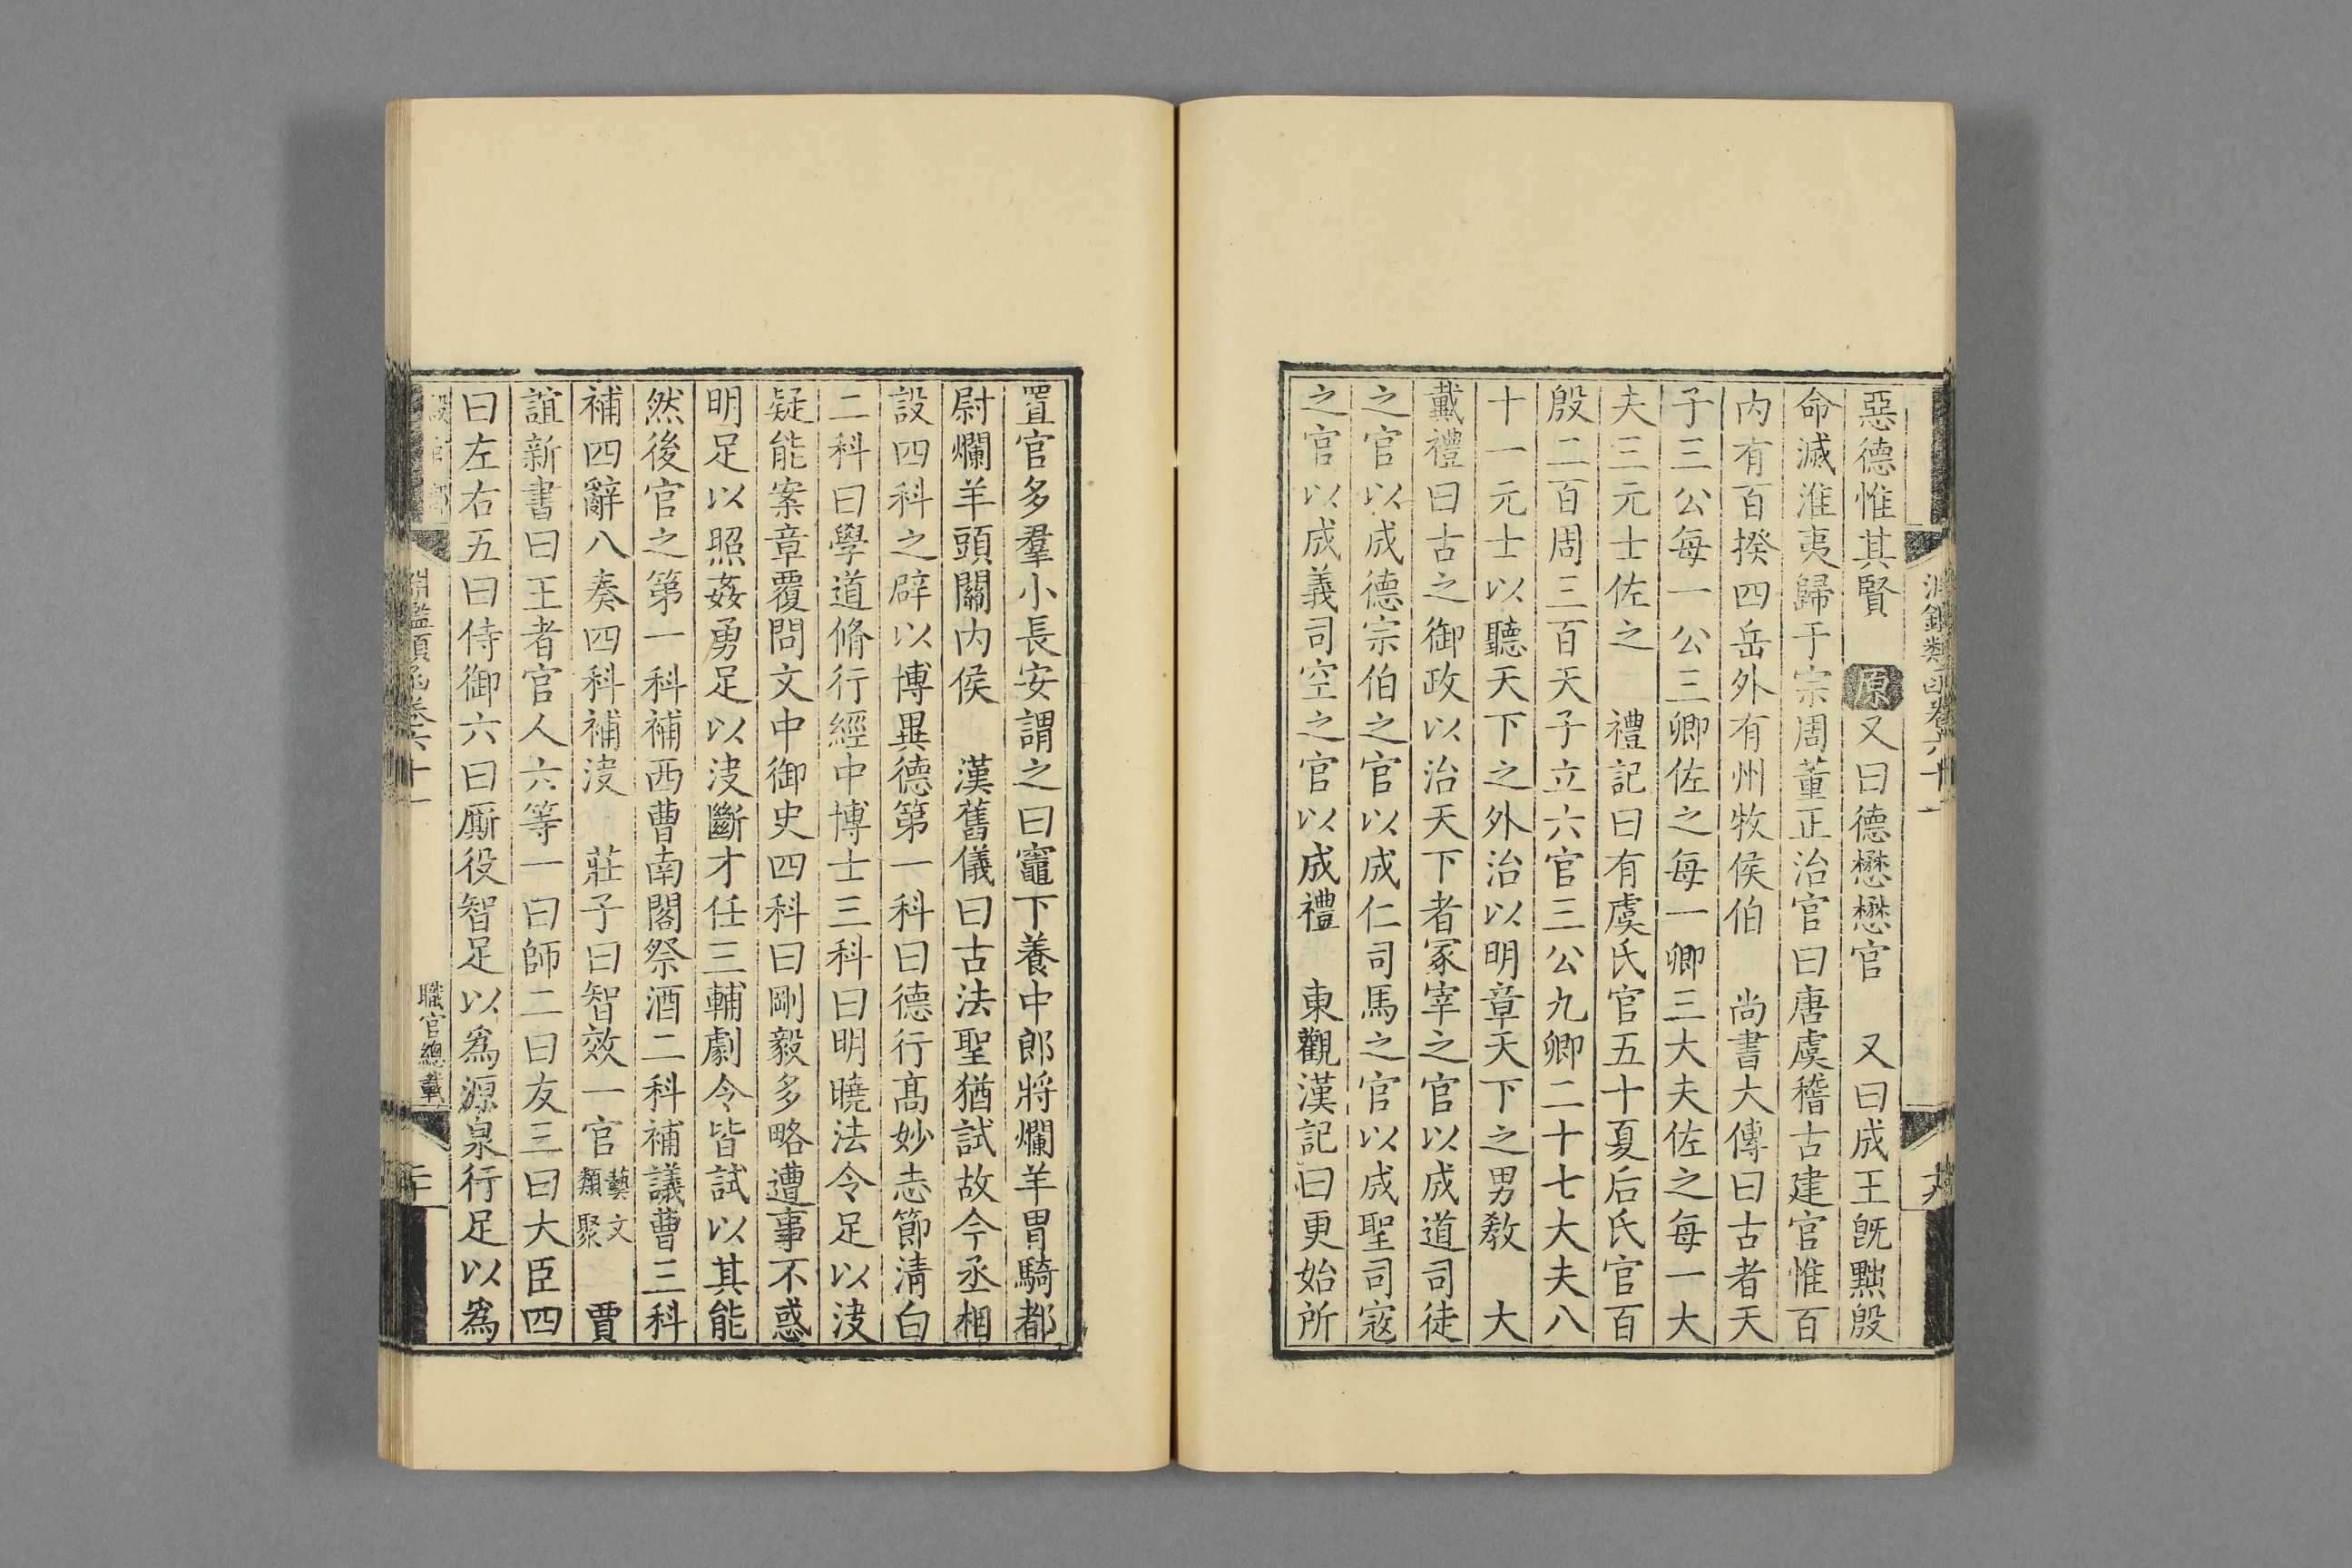 淵鑑類函卷六十一
惡德惟其賢 原又曰德懋懋官 又曰成王旣黜殷
命滅淮夷歸于宗周董正治官曰唐虞稽古建官惟百
內有百揆四岳外有州牧侯伯 尚書大傳曰古者天
子三公每一公三卿佐之每一卿三大夫佐之每一大
夫三元士佐之 禮記曰有虞氏官五十夏后氏官百
殷二百周三百天子立六官三公九卿二十七大夫八
十一元士以聽天下之外治以明章天下之男敎 大
戴禮曰古之御政以治天下者冢宰之官以成道司徒
之官以成德宗伯之官以成仁司馬之官以成聖司寇
之官以成義司空之官以成禮 東觀漢記曰更始所
置官多羣小長安謂之曰竈下養中郎將爛羊胃騎都
尉爛羊頭關內侯 漢舊儀曰古法聖猶試故今丞相
設四科之辟以博異德第一科曰德行高妙志節清白
二科曰學道脩行經中博士三科曰明曉法令足以決
疑能案章覆問文中御史四科曰剛毅多略遭事不惑
明足以照姦勇足以決斷才任三輔劇令皆試以其能
然後官之第一科補西曹南閣祭酒二科補議曹三科
補四辭八奏四科補決 莊子曰智效一官藝文類聚 賈
誼新書曰王者官人六等一曰師二曰友三曰大臣四
曰左右五曰侍御六曰厮役智足以爲源泉行足以爲
設官部 淵鑑類函卷六十一 職官總載